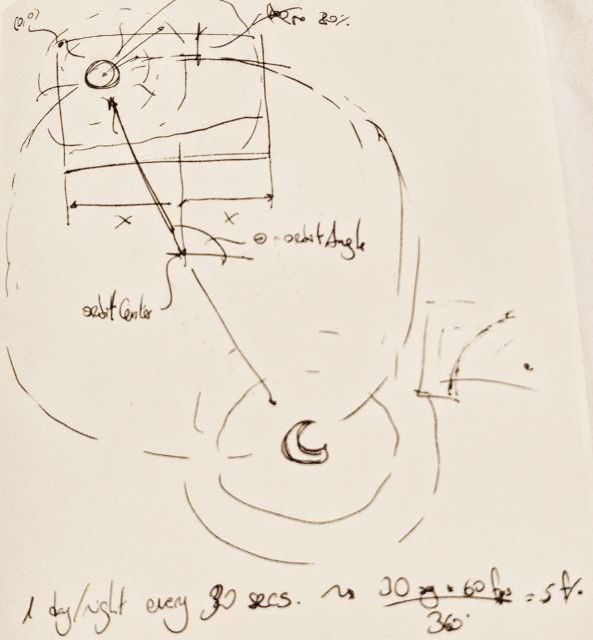 (0,0)
30%
x x
θ - orbitAngle
orbitCenter
1 day/night every 30 secs. ~> 30 sg * 60 fps = 5 f/°
360°